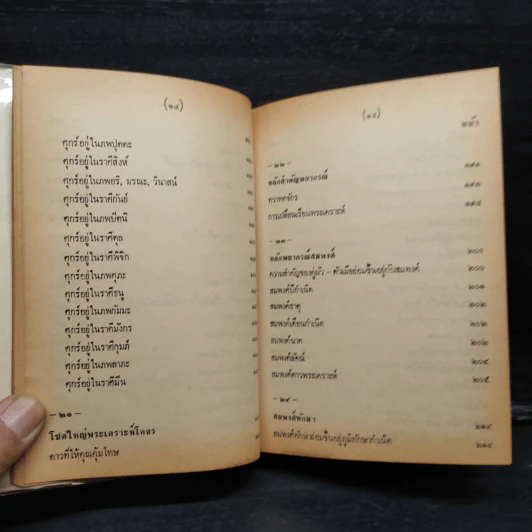 (๑๔)
ศุกร์อยู่ในภพปุตตะ
ศุกร์อยู่ในราศีสิงห์
ศุกร์อยู่ในภพอริ, มรณะ, วินาสน์
ศุกร์อยู่ในราศีกันย์
ศุกร์อยู่ในภพปัตนิ
ศุกร์อยู่ในราศีตุล
ศุกร์อยู่ในราศีพิจิก
ศุกร์อยู่ในภพศุภะ
ศุกร์อยู่ในราศีธนู
ศุกร์อยู่ในภพกัมมะ
ศุกร์อยู่ในราศีมังกร
ศุกร์อยู่ในราศีกุมภ์
ศุกร์อยู่ในภพลาภะ
ศุกร์อยู่ในราศีมีน
—๒๑—
โชคใหญ่พระเคราะห์โคจร
ดาวที่ให้คุณคุ้มโทษ
(๑๕)
หน้า
—๒๒—
หลักสำคัญพยากรณ์ ๑๙๑
ทวาทศจักร
การเปลี่ยนเรือนพระเคราะห์ ๑๙๘
—๒๓—
หลักพยากรณ์สมพงศ์ ๒๐๐
ความสำคัญของคู่ผัว - ตัวเมียย่อมขึ้นอยู่กับสมพงศ์ ๒๐๐
สมพงศ์ปีกำเนิด ๒๐๑
สมพงศ์ธาตุ ๒๐๒
สมพงศ์เดือนกำเนิด ๒๐๒
สมพงศ์นาค ๒๐๒
สมพงศ์ลัคน์ ๒๐๔
สมพงศ์ดาวพระเคราะห์ ๒๐๕
—๒๔—
สมพงศ์ทักษา ๒๑๔
สมพงศ์ทักษาย่อมขึ้นอยู่ภูมิทักษากำเนิด ๒๑๔